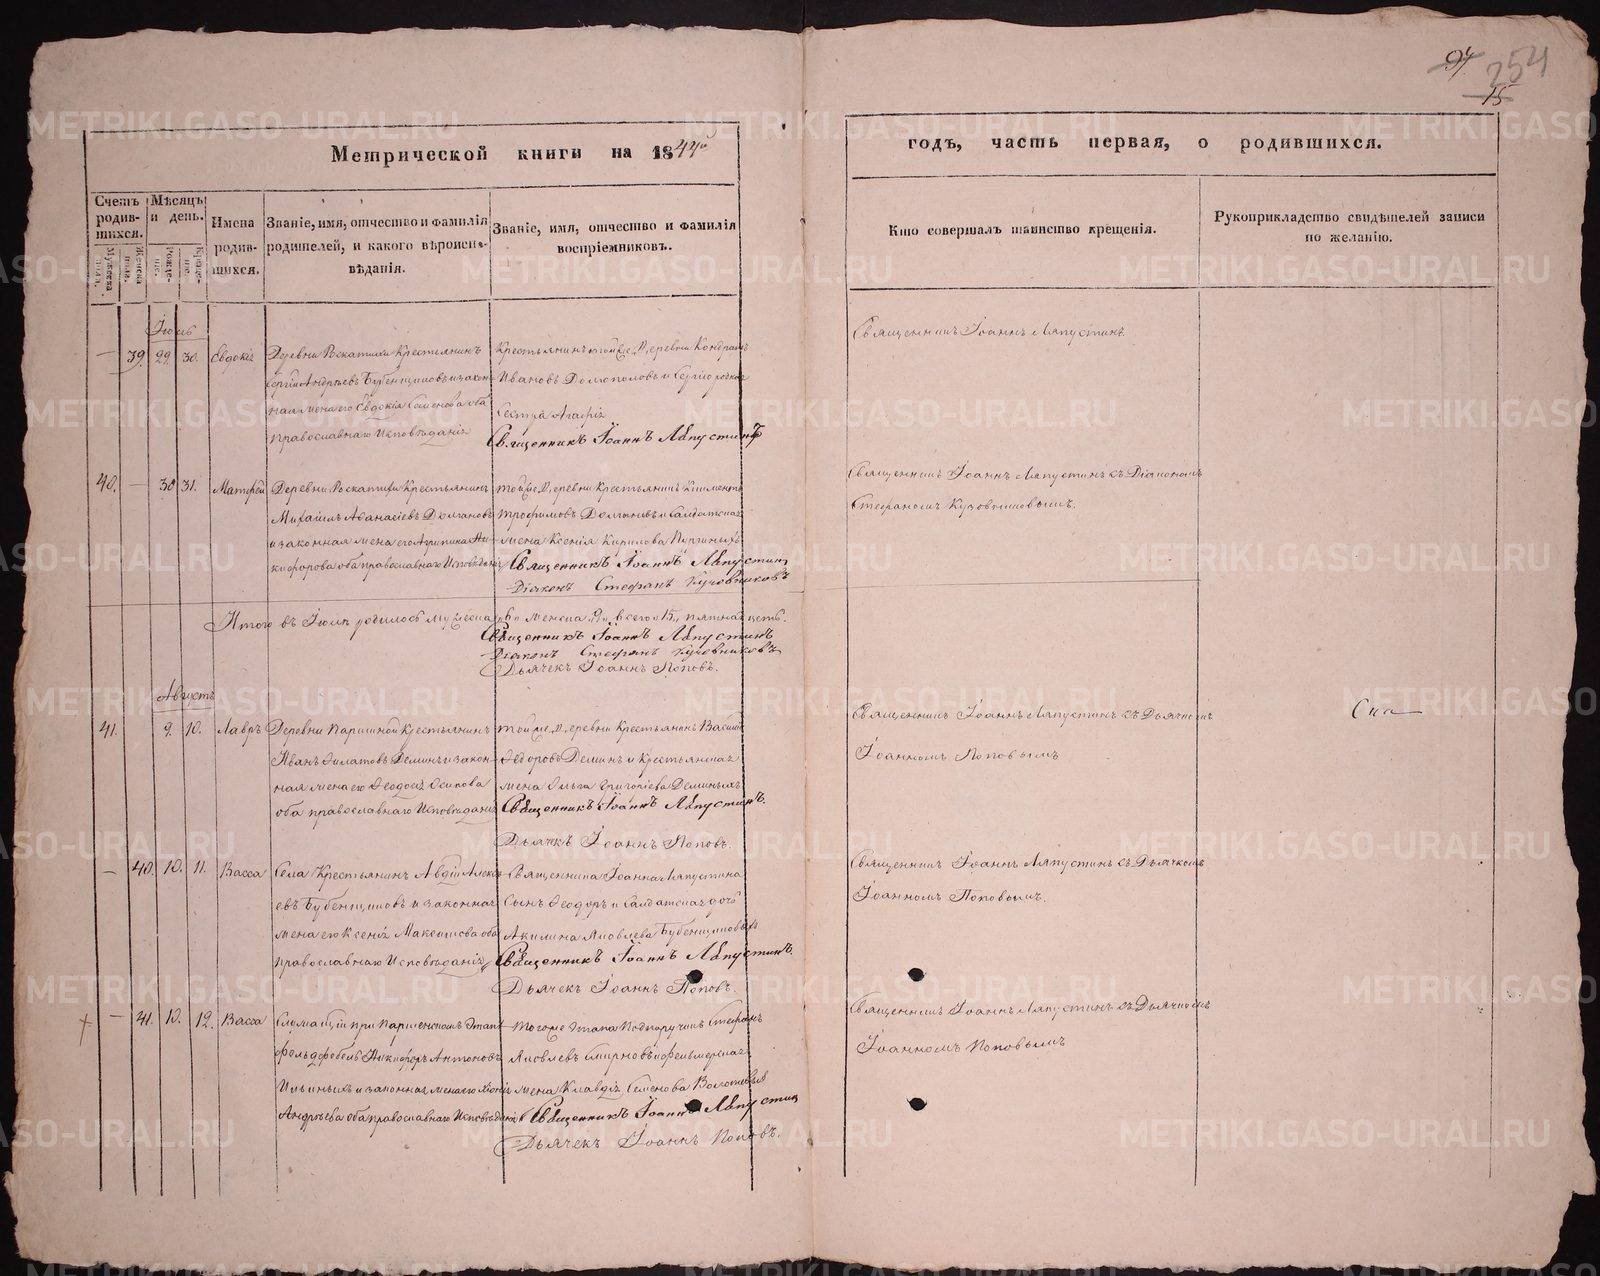 94
254
15
Метрической книги на 1844й
годъ, часть первая, о родившихся.
Счетъ родив- шихся.
Мѣсяцъ и день.
Имена родив- шихся.
Званіе, имя, отчество и фамилія родителей, и какого вѣроиспо- вѣданія.
Званіе, имя, отчество и фамилія воспріемниковъ.
Кто совершалъ таинство крещенія.
Рукоприкладство свидѣтелей записи по желанію.
Мужеска пола.
Женска пола.
Рожде- ніе.
Креще- ніе.
Іюль
— 39. 29. 30. Евдокія
Деревни Раскатихи Крестьянинъ
Сергій Андреевъ Бубенщиковъ и закон-
ная жена его Евдокія Семенова оба
православнаго Исповѣданія
Крестьянинъ той же Деревни
Ивановъ Долгополовъ и
Сестра Агафія
Священникъ Іоаннъ Ляпустинъ
Священникъ Іоаннъ Ляпустинъ
40. — 30. 31. Матфей
Деревни Раскатихи Крестьянинъ
Михаилъ Аѳанасіевъ Долгановъ
и законная жена его Агрипина Ни-
кифорова оба православнаго Исповѣданія
той же Деревни Крестьянинъ Климентъ
Трофимовъ Долгановъ и Салдатская
жена Ксенія Кирилова
Священникъ Іоаннъ Ляпустинъ
Діаконъ Стефанъ Кузовниковъ
Священникъ Іоаннъ Ляпустинъ съ Діакономъ
Стефаномъ Кузовниковымъ.
Итого въ Іюлѣ родилось мужеска 6. женска 9. всего 15, пятнадцать.
Священникъ Іоаннъ Ляпустинъ
Діаконъ Стефанъ Кузовниковъ
Дьячекъ Іоаннъ Поповъ.
Августъ
41. 9. 10. Лавръ
Деревни Паршиной Крестьянинъ
Иванъ Филатовъ Деминъ и закон-
ная жена его Ѳеодосія Осипова
оба православнаго Исповѣданія
той же Деревни Крестьянинъ Василій
Ѳедоровъ Деминъ и Крестьянская
жена Ольга Григоріева Деминыхъ
Священникъ Іоаннъ Ляпустинъ.
Дьячекъ Іоаннъ Поповъ.
Священникъ Іоаннъ Ляпустинъ съ Дьячкомъ
Іоанномъ Поповымъ
— 40. 10. 11. Васса
Села Крестьянинъ Авдій Алексѣ-
евъ Бубенщиковъ и законная
жена его Ксенія Максимова оба
православнаго Исповѣданія
Священника Іоанна Ляпустина
Сынъ Ѳеодоръ и Салдатская дочь
Акилина Яковлева Бубенщиковыхъ
Священникъ Іоаннъ Ляпустинъ.
Дьячекъ Іоаннъ Поповъ.
Священникъ Іоаннъ Ляпустинъ съ Дьячкомъ
Іоанномъ Поповымъ.
— 41. 10. 12. Васса
при Этапѣ
фельдфебель Никифоръ Антоновъ
и законная жена его
Андреева оба православнаго Исповѣданія
Того же Этапа Подпоручикъ Стефанъ
Яковлевъ Смирновъ и
жена Клавдія Семенова
Священникъ Іоаннъ Ляпустинъ
Дьячекъ Іоаннъ Поповъ.
Священникъ Іоаннъ Ляпустинъ съ Дьячкомъ
Іоанномъ Поповымъ
METRIKI.GASO-URAL.RU